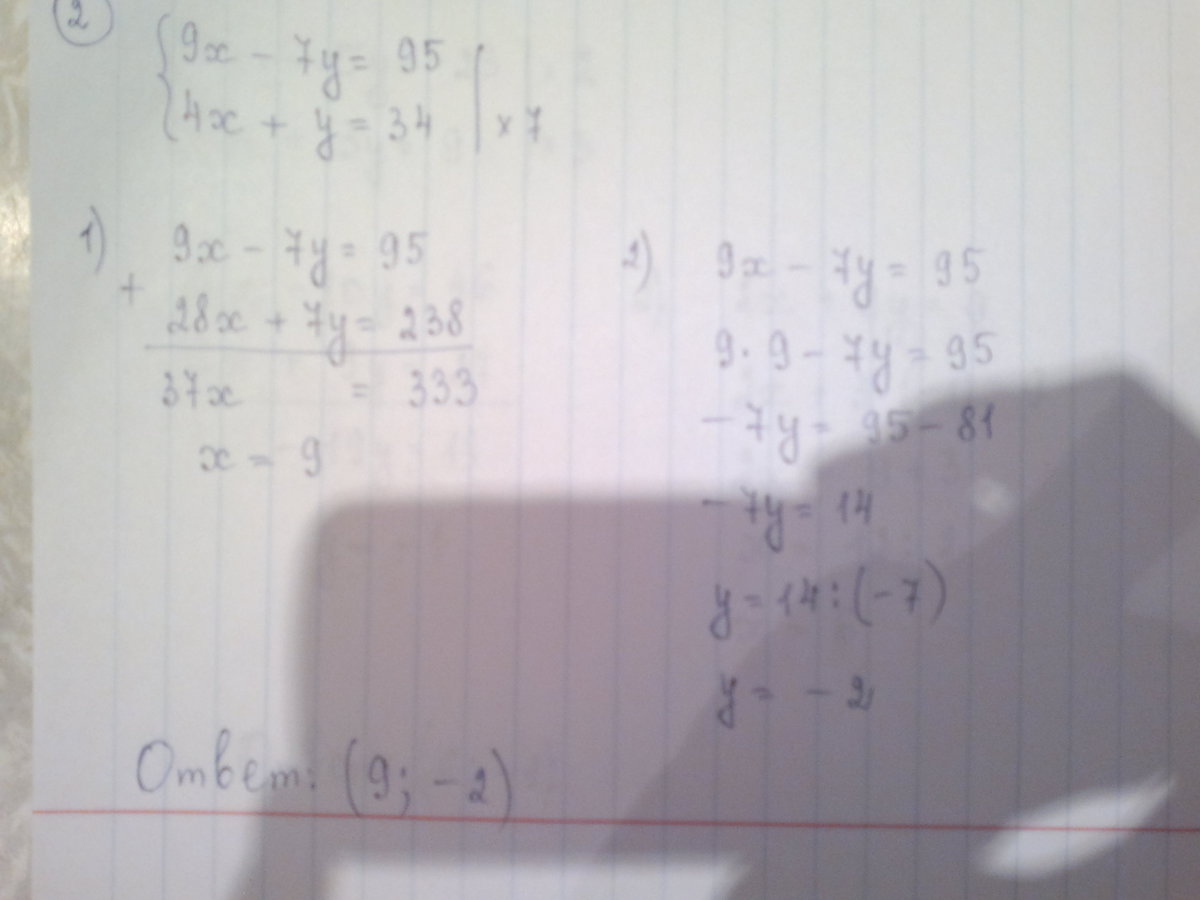 2
9x - 7y = 95
4x + y = 34 | × 7
1)
9x - 7y = 95
+
28x + 7y = 238
37x = 333
x = 9
2)
9x - 7y = 95
9 · 9 - 7y = 95
- 7y = 95 - 81
- 7y = 14
y = 14 : (-7)
y = - 2
Ответ: (9; -2)